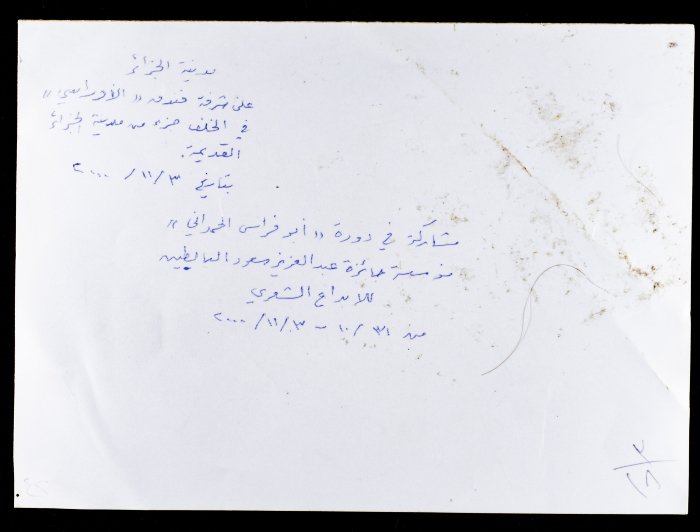 مدينة الجزائر
على شرفة فندق « الأوراسي »
في الخلف جزء من مدينة الجزائر
القديمة.
بتاريخ ٣ /١١/ ٢٠٠٠
مشاركة في دورة « أبو فراس الحمداني »
مؤسسة جائزة عبد العزيز سعود البابطين
للابداع الشعري
من ٣١ /١٠ - ٣ /١١/ ٢٠٠٠